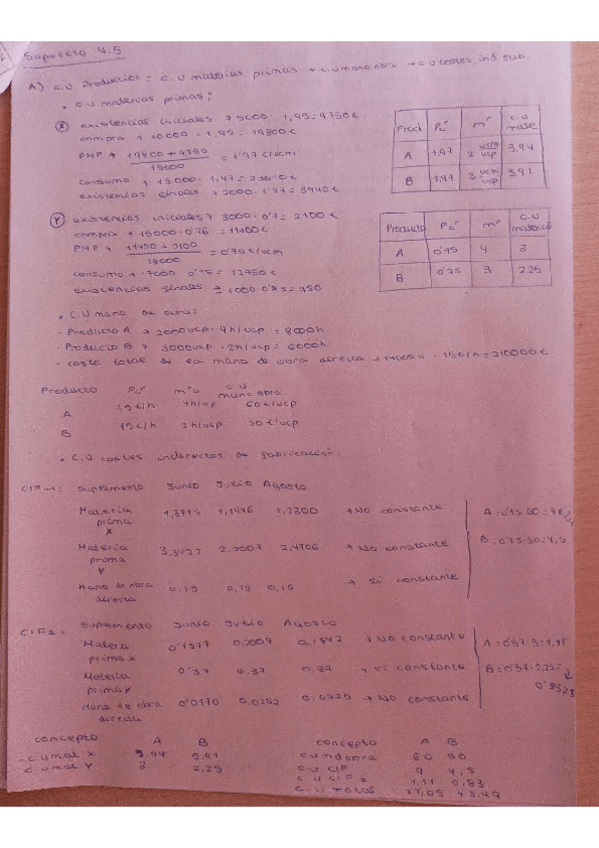 Supuesto 4.5
A) C.U Produccion = C.U materias primas + C.U mano obra + C.U costes ind fab.
• C.U materias primas:
X existencias iniciales → 5000 · 1,95 = 9750€
compra → 10000 · 1,98 = 19800€
PMP → 19800 + 9750 / 15000 = 1'97 €/ucm
consumo → 13.000 · 1.97 =
existencias finales → 2000 · 1'97 = 3940€
Prod P𝒸ʳ mʳ C.U mate
A 1,97 2 ucm/ucp 3,94
B 1,97 ucm/ucp 3,91
Y existencias iniciales → 3000 · 0'7 = 2100€
compra → 15000 · 0'76 = 11400€
PMP → 11400 + 2100 / 18000 = €/ucm
consumo → 17000 · 0'75 = 12750€
existencias finales → 1000 · 0'75 = 750
Producto Pcʳ mʳ C.U material
A 0'75 4 3
B 0'75 3 2.25
• C.U mano de obra:
- Producto A → 2000 ucp · 4h/ucp = 8000h
- Producto B → 3000 ucp · 2h/ucp = 6000h
- coste total de la mano de obra directa → 14000h · 15€/h = 210000€
Producto Pcʳ mʳo C.U mano obra
A 15€/h 4h/ucp 60€/ucp
B 15€/h 2h/ucp 30€/ucp
• C.U costes indirectos de fabricación:
CIF1: suplemento Junio Julio Agosto
Materia prima X 1,3915 1,1946 1,2300 → No constante
Materia prima Y 3,3427 2,4706 → No constante
Mano de obra directa 0,15 0,15 0,15 → Si constante
A = 0'15·60 = 9€
B = 0'15·30 = 4,5
CIF2: suplemento Junio Julio Agosto
Materia prima X 0'1577 0,2009 0,1842 → No constante
Materia prima Y 0'37 0,37 0,37 → Si constante
Mano de obra directa 0'0170 0,0252 0,0220 → No constante
A = 0'37·3 = 1,11
B = 0'37·2,25 =
0'8325
concepto A B
C.U mat X 3,94 3,91
C.U mat Y 3 2,25
concepto A B
C.U mdobra 60 30
C.U CIF 9 4,5
C.U CIF 2 1,11 0,83
C.U TOTAL 77,05